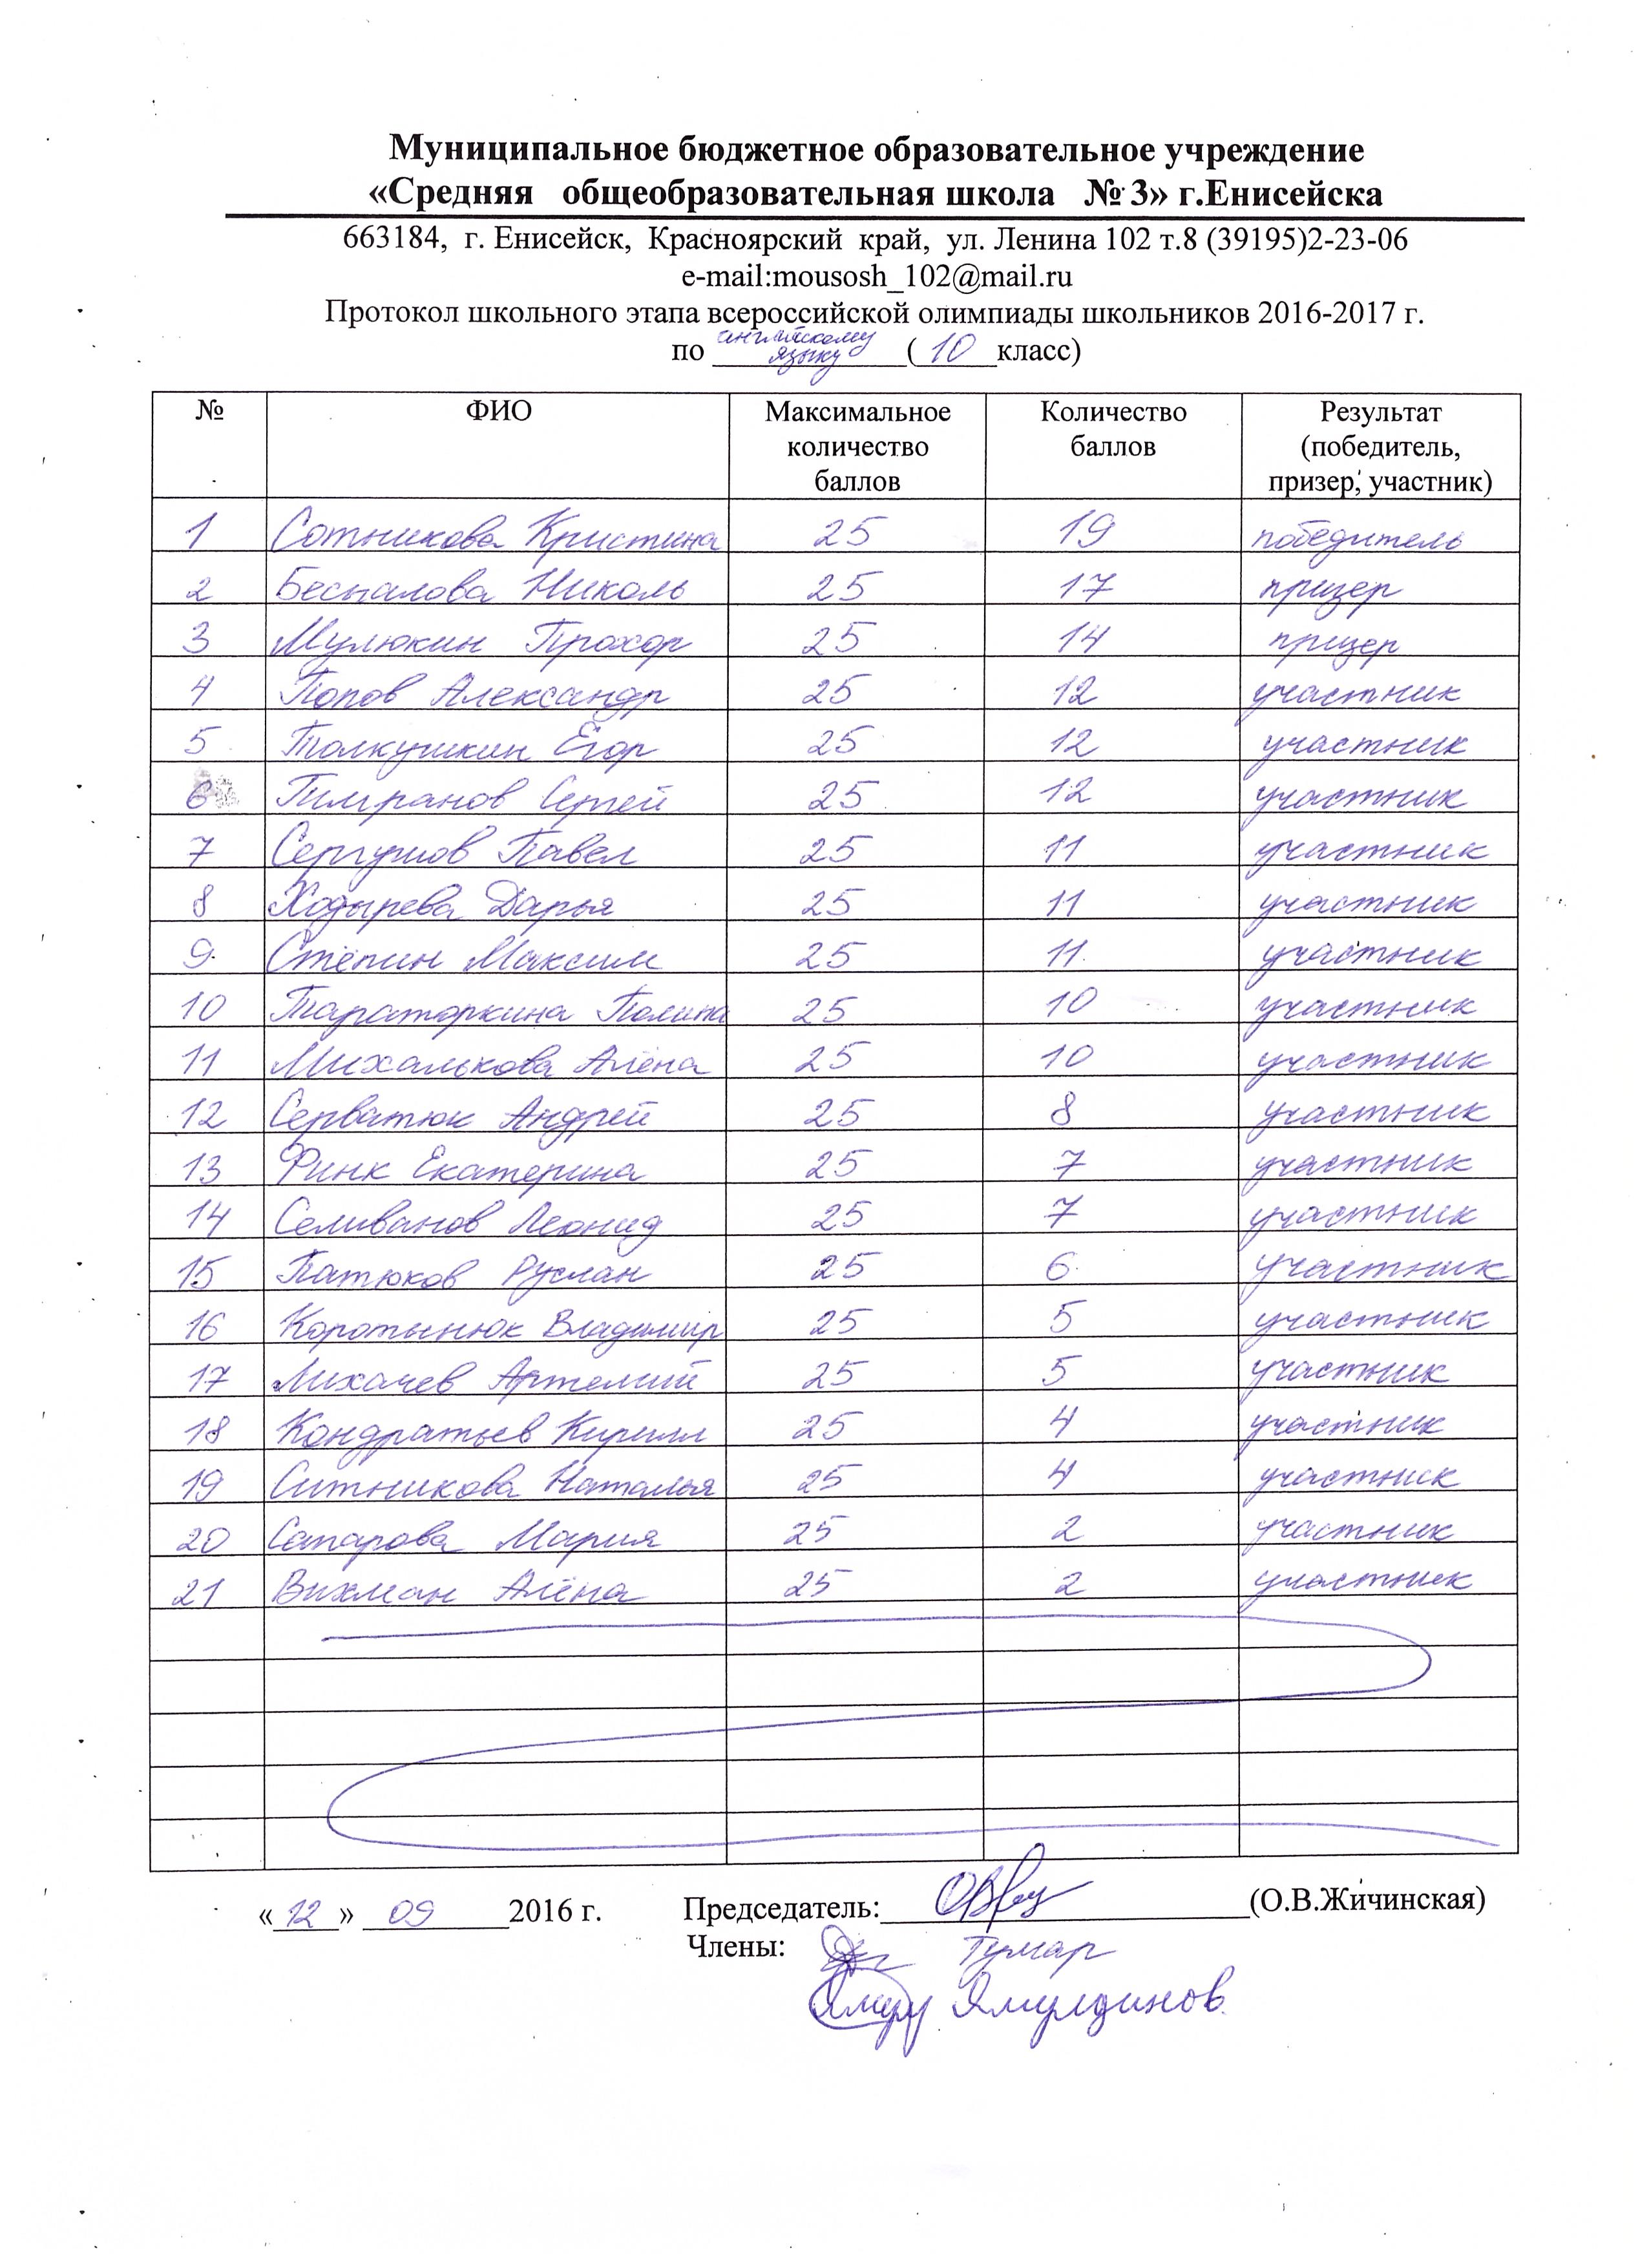 Муниципальное бюджетное образовательное учреждение
«Средняя общеобразовательная школа № 3» г.Енисейска
663184, г. Енисейск, Красноярский край, ул. Ленина 102 т.8 (39195)2-23-06
e-mail:mousosh_102@mail.ru
Протокол школьного этапа всероссийской олимпиады школьников 2016-2017 г.
по английскому языку (10 класс)
№ ФИО Максимальное количество баллов Количество баллов Результат (победитель, призер, участник)
1 Сотникова Кристина 25 19 победитель
2 Беспалова Николь 25 17 призер
3 Мулюкин Прохор 25 14 призер
4 Попов Александр 25 12 участник
5 Толкушкин Егор 25 12 участник
6 Гимранов Сергей 25 12 участник
7 Сергушов Павел 25 11 участник
8 Ходырева Дарья 25 11 участник
9 Стёпин Максим 25 11 участник
10 Тараторкина Полина 25 10 участник
11 Михалькова Алёна 25 10 участник
12 Серватюк Андрей 25 8 участник
13 Финк Екатерина 25 7 участник
14 Селиванов Леонид 25 7 участник
15 Патюков Руслан 25 6 участник
16 Коротынюк Владимир 25 5 участник
17 Лихачев Артемий 25 5 участник
18 Кондратьев Кирилл 25 4 участник
19 Ситникова Наталья 25 4 участник
20 Сапарова Мария 25 2 участник
21 Вихман Алёна 25 2 участник
«12» 09 2016 г. Председатель: (О.В.Жичинская)
Члены: Тумар
Ямулдинов